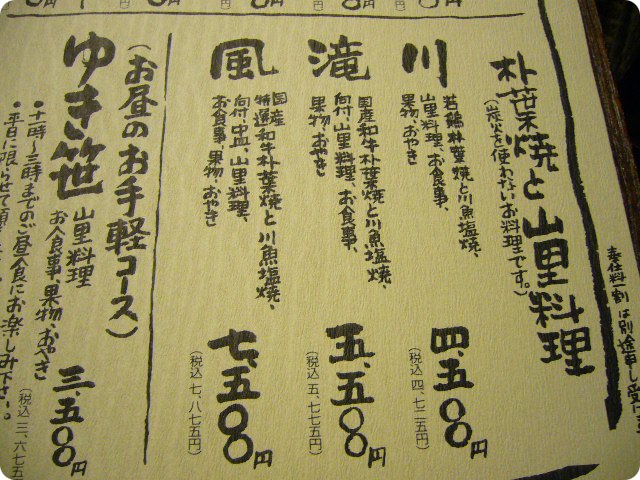 奉仕料一割は別途申し受け
朴葉焼と山里料理
(炭火を使わないお料理です。)
川
若鶏朴葉焼と川魚塩焼、
山里料理、お食事、
果物、おやき
四、五〇〇円
(税込 四、七二五円)
滝
国産和牛朴葉焼と川魚塩焼、
向付、山里料理、お食事、
果物、おやき
五、五〇〇円
(税込 五、七七五円)
風
国産
特選和牛朴葉焼と川魚塩焼、
向付、中皿、山里料理、
お食事、果物、おやき
七、五〇〇円
(税込 七、八七五円)
(お昼のお手軽コース)
ゆき笹
山里料理
お食事、果物、おやき
三、五〇〇円
(税込 三、六七五
・十一時〜三時までのご昼食にお楽しみ下さい。
・平日に限らせて頂